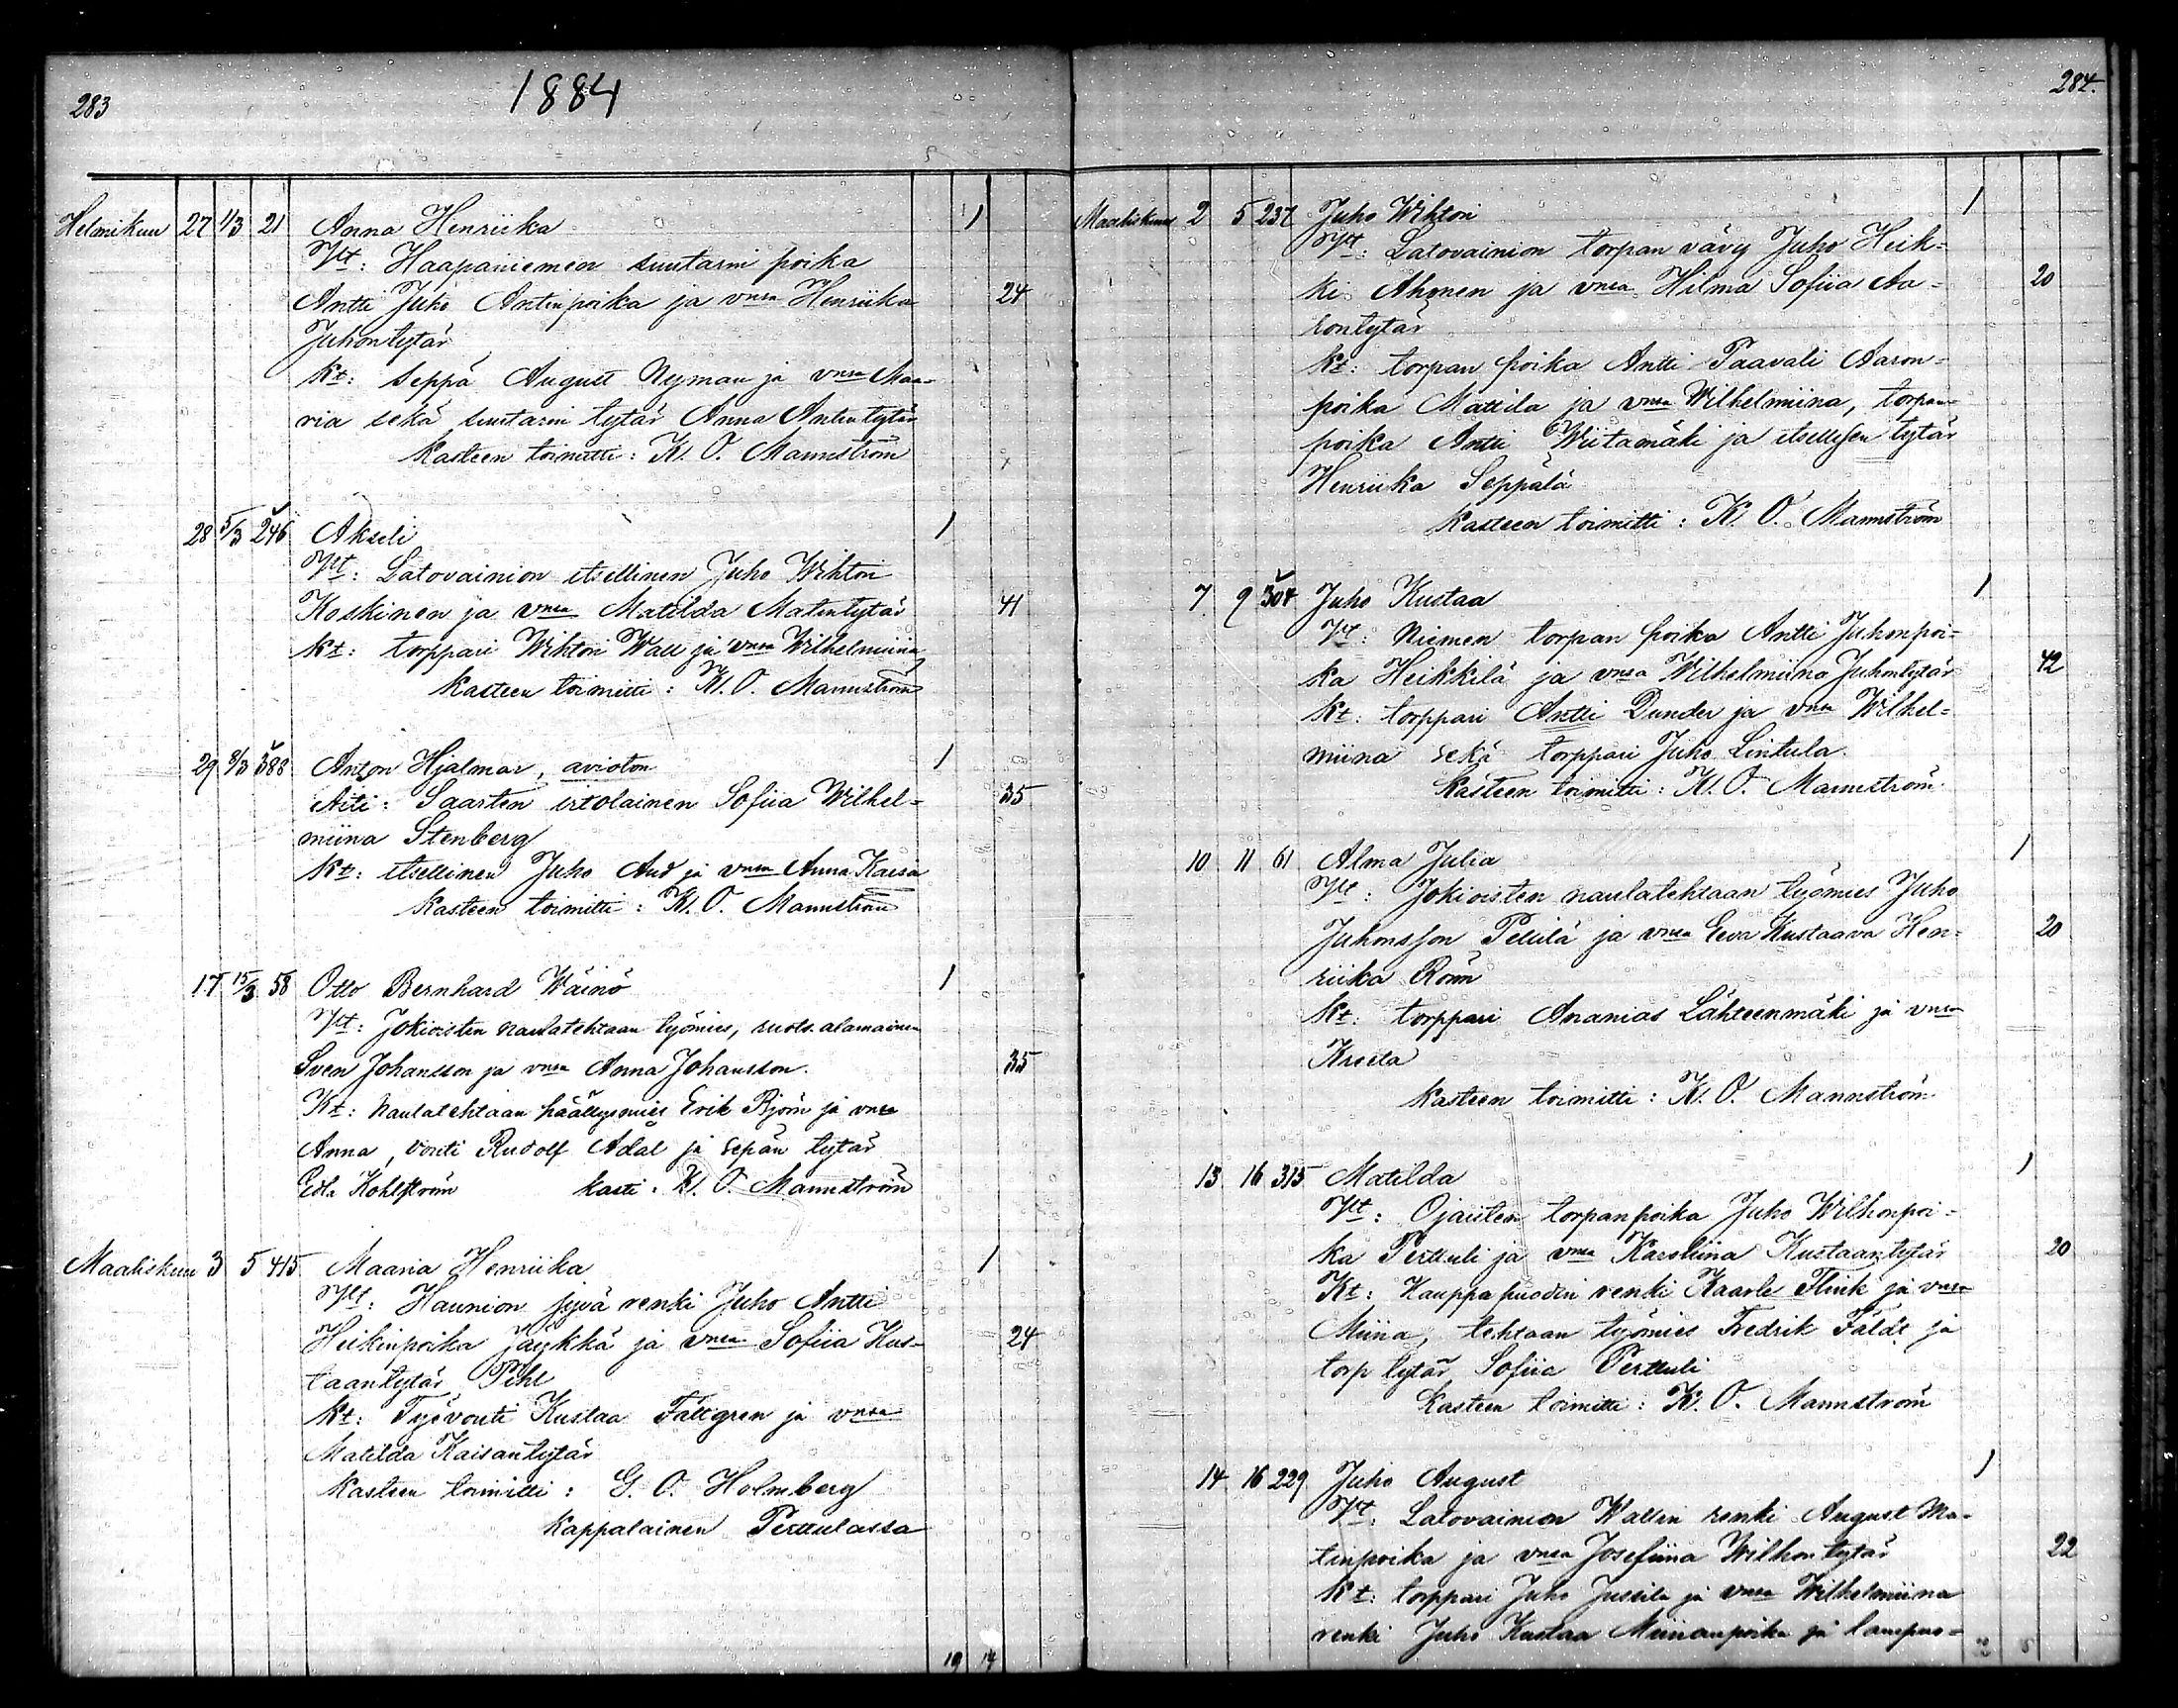 283
1884
Helmikuu 27 1/3 21 Anna Henriika 1
Vt: Haapaniemen suutarin poika
Antti Juho Antinpoika ja vmsa Henriika 24
Juhontytär
Kt: Seppä August Nyman ja vmsa Maa-
ria sekä suutarin tytär Anna Antintytär
Kasteen toimitti: K. O. Mannström
28 5/3 246 Akseli 1
Vt: Latovainion itsellinen Juho Wihtori
Koskinen ja vmsa Matilda Matintytär 41
Kt: torppari Wihtori Wall ja vmsa Wilhelmiina
Kasteen toimitti: K. O. Mannström
29 9/3 388 Anton Hjalmar, avioton 1
Äiti: Saarten irtolainen Sofiia Wilhel= 35
miina Stenberg
Kt: itsellinen Juho And ja vmsa Anna Kaisa
Kasteen toimitti: K. O. Mannström
17 15/3 58 Otto Bernhard Wäinö 1
Vt: Jokioisten naulatehtaan työmies, ruots. alamainen
Sven Johansson ja vmsa Anna Johansson. 35
Kt: Naulatehtaan päällysmies Erik Björn ja vmsa
Anna, vouti Rudolf Adal ja sepän tytär
Edla Kohlström kasti: K. O. Mannström
Maaliskuu 3 5 415 Maaria Henriika 1
Vt: Haunion jyvä renki Juho Antti
Heikinpoika Jäykkä ja vmsa Sofiia Kus- 24
taantytär Pihl
Kt: Työvouti Kustaa Fältgren ja vmsa
Matilda Kaisantytär
Kasteen toimitti: G. O. Holmberg
Kappalainen Perttulassa
19 14
284.
Maaliskuu 2 5 237 Juho Wihtori 1
Vt: Latovainion torpan vävy Juho Heik=
ki Ahonen ja vmsa Hilma Sofiia Aa= 20
rontytär
Kt: torpan poika Antti Paavali Aaron=
poika Mattila ja vmsa Wilhelmiina, torpan
poika Antti Wiitamäki ja itsellisen tytär
Henriika Seppälä
Kasteen toimitti: K. O. Mannström
7 9 304 Juho Kustaa 1
Vt: Niemen torpan poika Antti Juhonpoi=
ka Heikkilä ja vmsa Wilhelmiina Juhontytär 42
Kt: torppari Antti Dunder ja vmsa Wilhel=
miina sekä torppari Juho Lintula.
Kasteen toimitti: K. O. Mannström.
10 11 61 Alma Julia 1
Vt: Jokioisten naulatehtaan työmies Juho
Juhonsson Pellilä ja vmsa Eeva Kustaava Hen= 20
riika Rönn
Kt: torppari Ananias Lähteenmäki ja vmsa
Kreeta
Kasteen toimitti: K. O. Mannström
13 16 315 Matilda 1
Vt: Ojaisten torpanpoika Juho Wilhonpoi=
ka Perttuli ja vmsa Karoliina Kustaantytär 20
Kt: Kauppapuodin renki Kaarle Flink ja vmsa
Miina, tehtaan työmies Fredrik Fäldt ja
torp tytär Sofiia Perttuli
Kasteen toimitti: K. O. Mannström
14 16 229 Juho August 1
Vt: Latovainion Wallin renki August Ma-
tinpoika ja vmsa Josefiina Wilhontytär 22
Kt: torppari Juho Jussila ja vmsa Wilhelmiina
renki Juho Kustaa Miinanpoika ja lampuo=